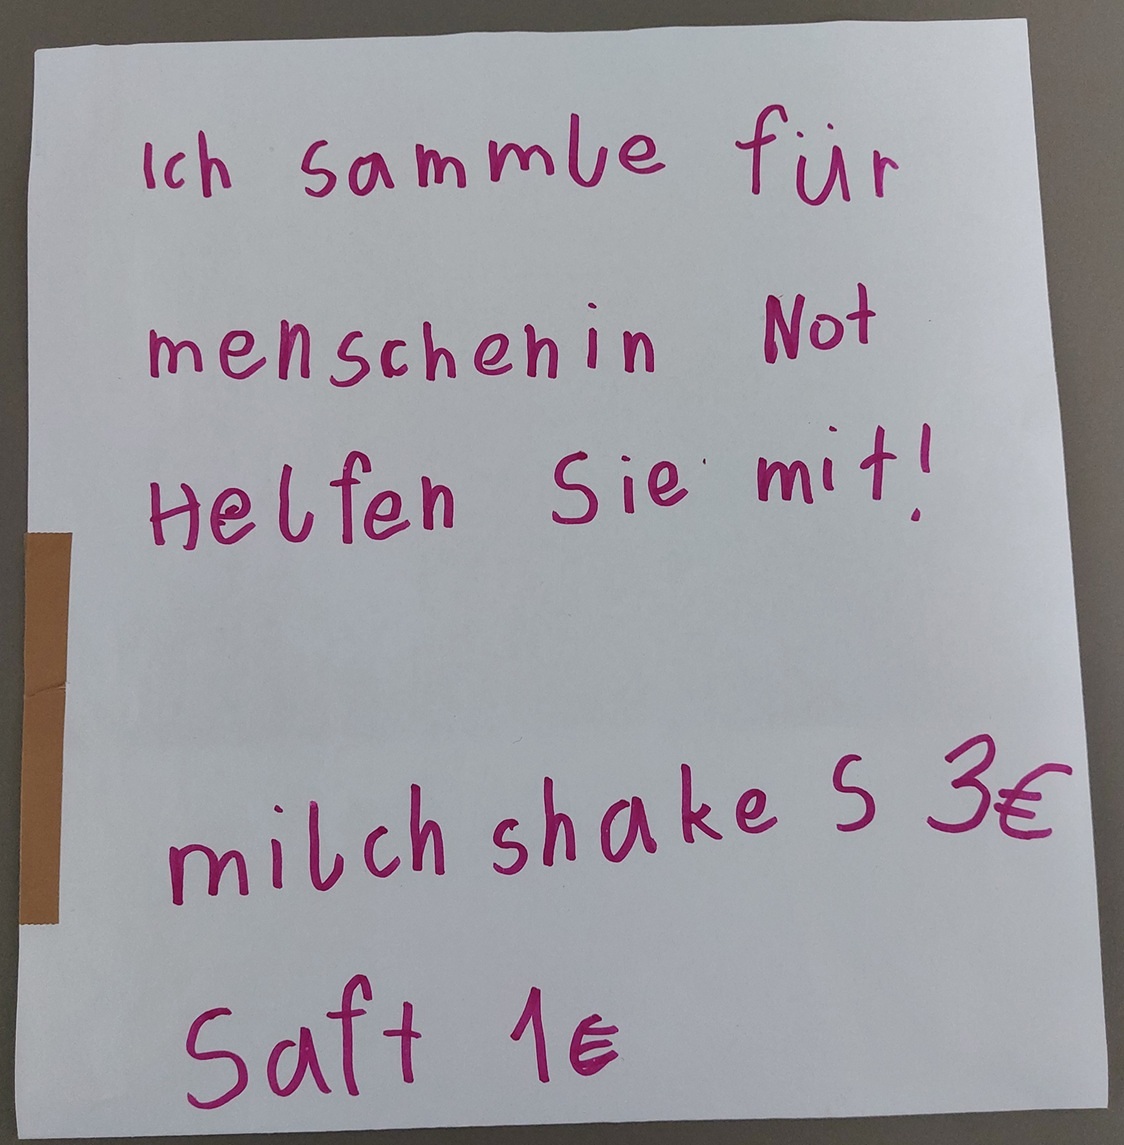 Ich sammle für
menschenin Not
Helfen Sie mit!
milchshake S 3€
Saft 1€